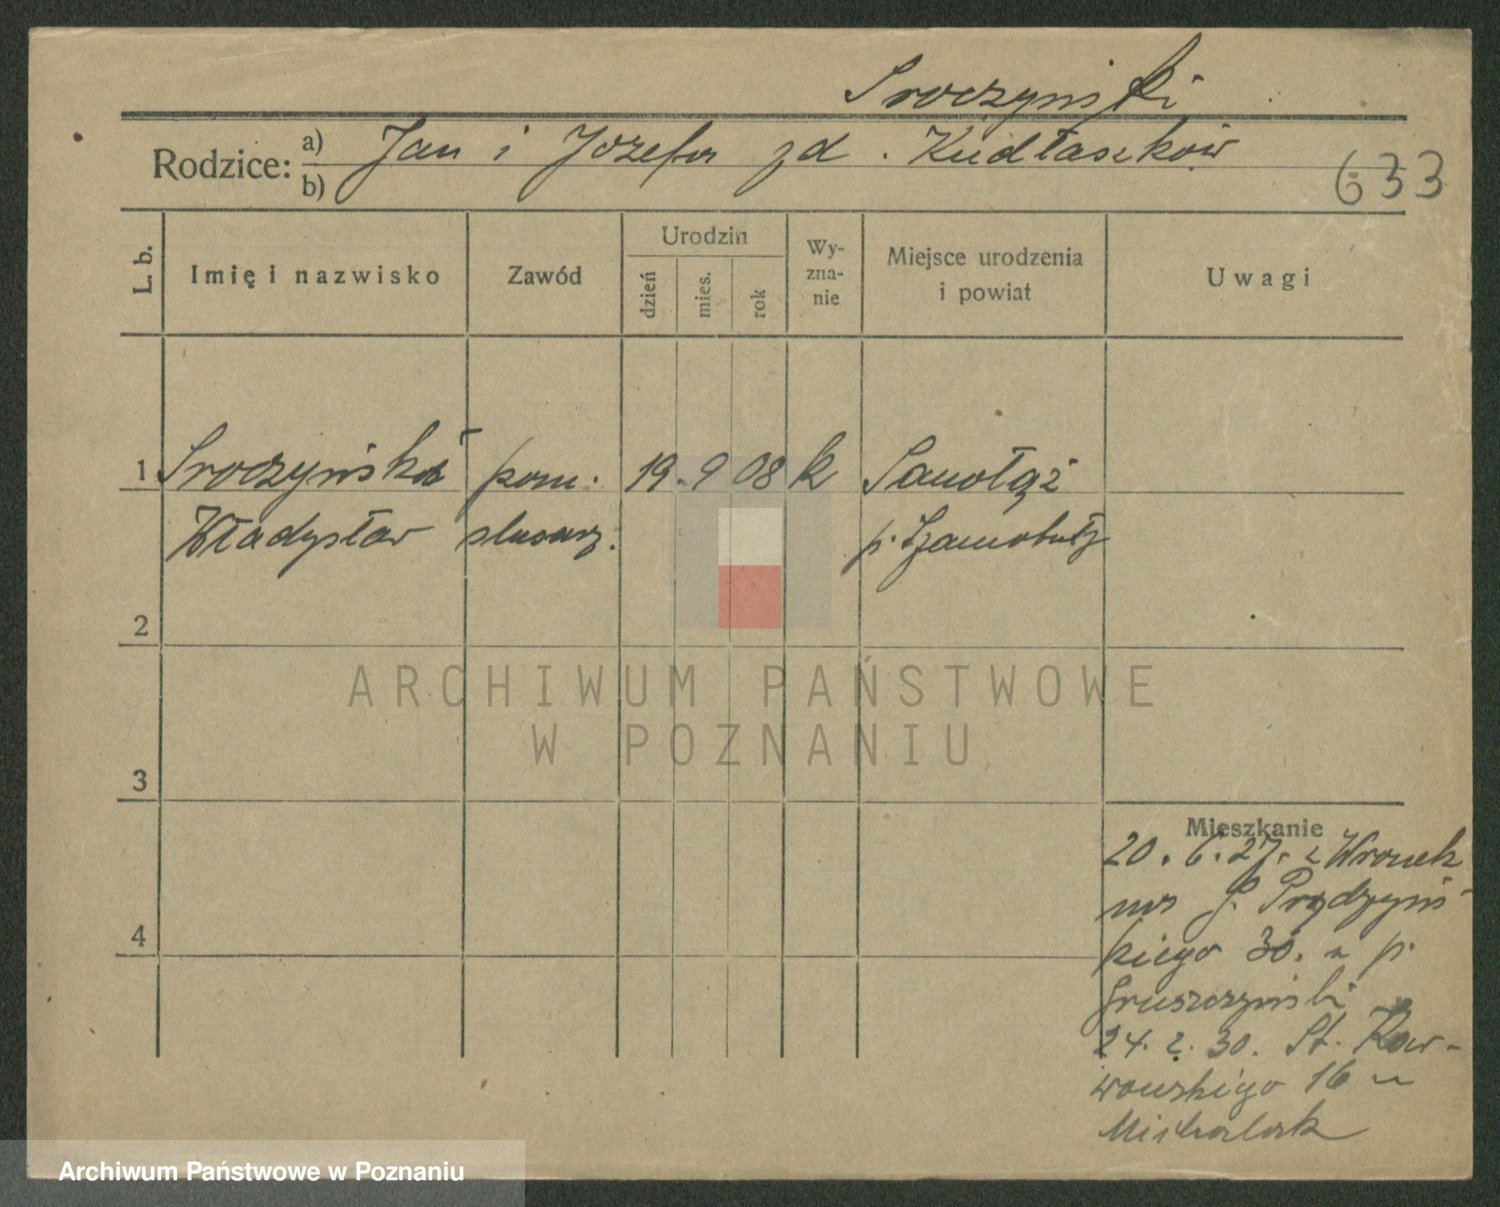 Sroczyński
Rodzice: a) Jan i Józefa zd. Kudłaszków
b)
633
L. b.
Imię i nazwisko
Zawód
Urodzin
dzień
mies.
rok
Wy-
zna-
nie
Miejsce urodzenia
i powiat
Uwagi
1 Sroczyński pom. 19. 9 08 k Samołąż
Władysław slusarz. p. Szamotuły
2
3
4
Mieszkanie
20. 6. 27. z Wronek
na P. Prądzyńs-
kiego 30. u p.
Gruszczyński
24. 2. 30. St. Kar-
wowskiego 16 u
Michalak
ARCHIWUM PAŃSTWOWE
W POZNANIU
Archiwum Państwowe w Poznaniu